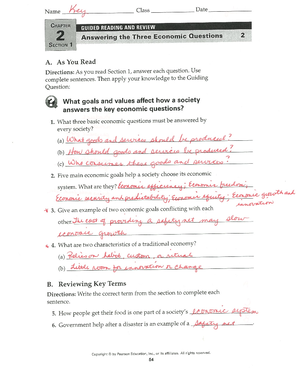 Name Key Class Date
CHAPTER
2
SECTION 1
GUIDED READING AND REVIEW
Answering the Three Economic Questions 2
A. As You Read
Directions: As you read Section 1, answer each question. Use
complete sentences. Then apply your knowledge to the Guiding
Question:
What goals and values affect how a society
answers the key economic questions?
1. What three basic economic questions must be answered by
every society?
(a) What goods and services should be produced?
(b) How should goods and services be produced?
(c) Who consumes these goods and services?
2. Five main economic goals help a society choose its economic
system. What are they? Economic efficiency; Economic freedom;
Economic security and predictability; Economic equity; Economic growth and
innovation
3. Give an example of two economic goals conflicting with each
other. The cost of providing a safety net may slow
economic growth
4. What are two characteristics of a traditional economy?
(a) Relies on habit, custom, or ritual
(b) Little room for innovation or change
B. Reviewing Key Terms
Directions: Write the correct term from the section to complete each
sentence.
5. How people get their food is one part of a society's economic system
6. Government help after a disaster is an example of a safety net
Copyright © by Pearson Education, Inc., or its affiliates. All rights reserved.